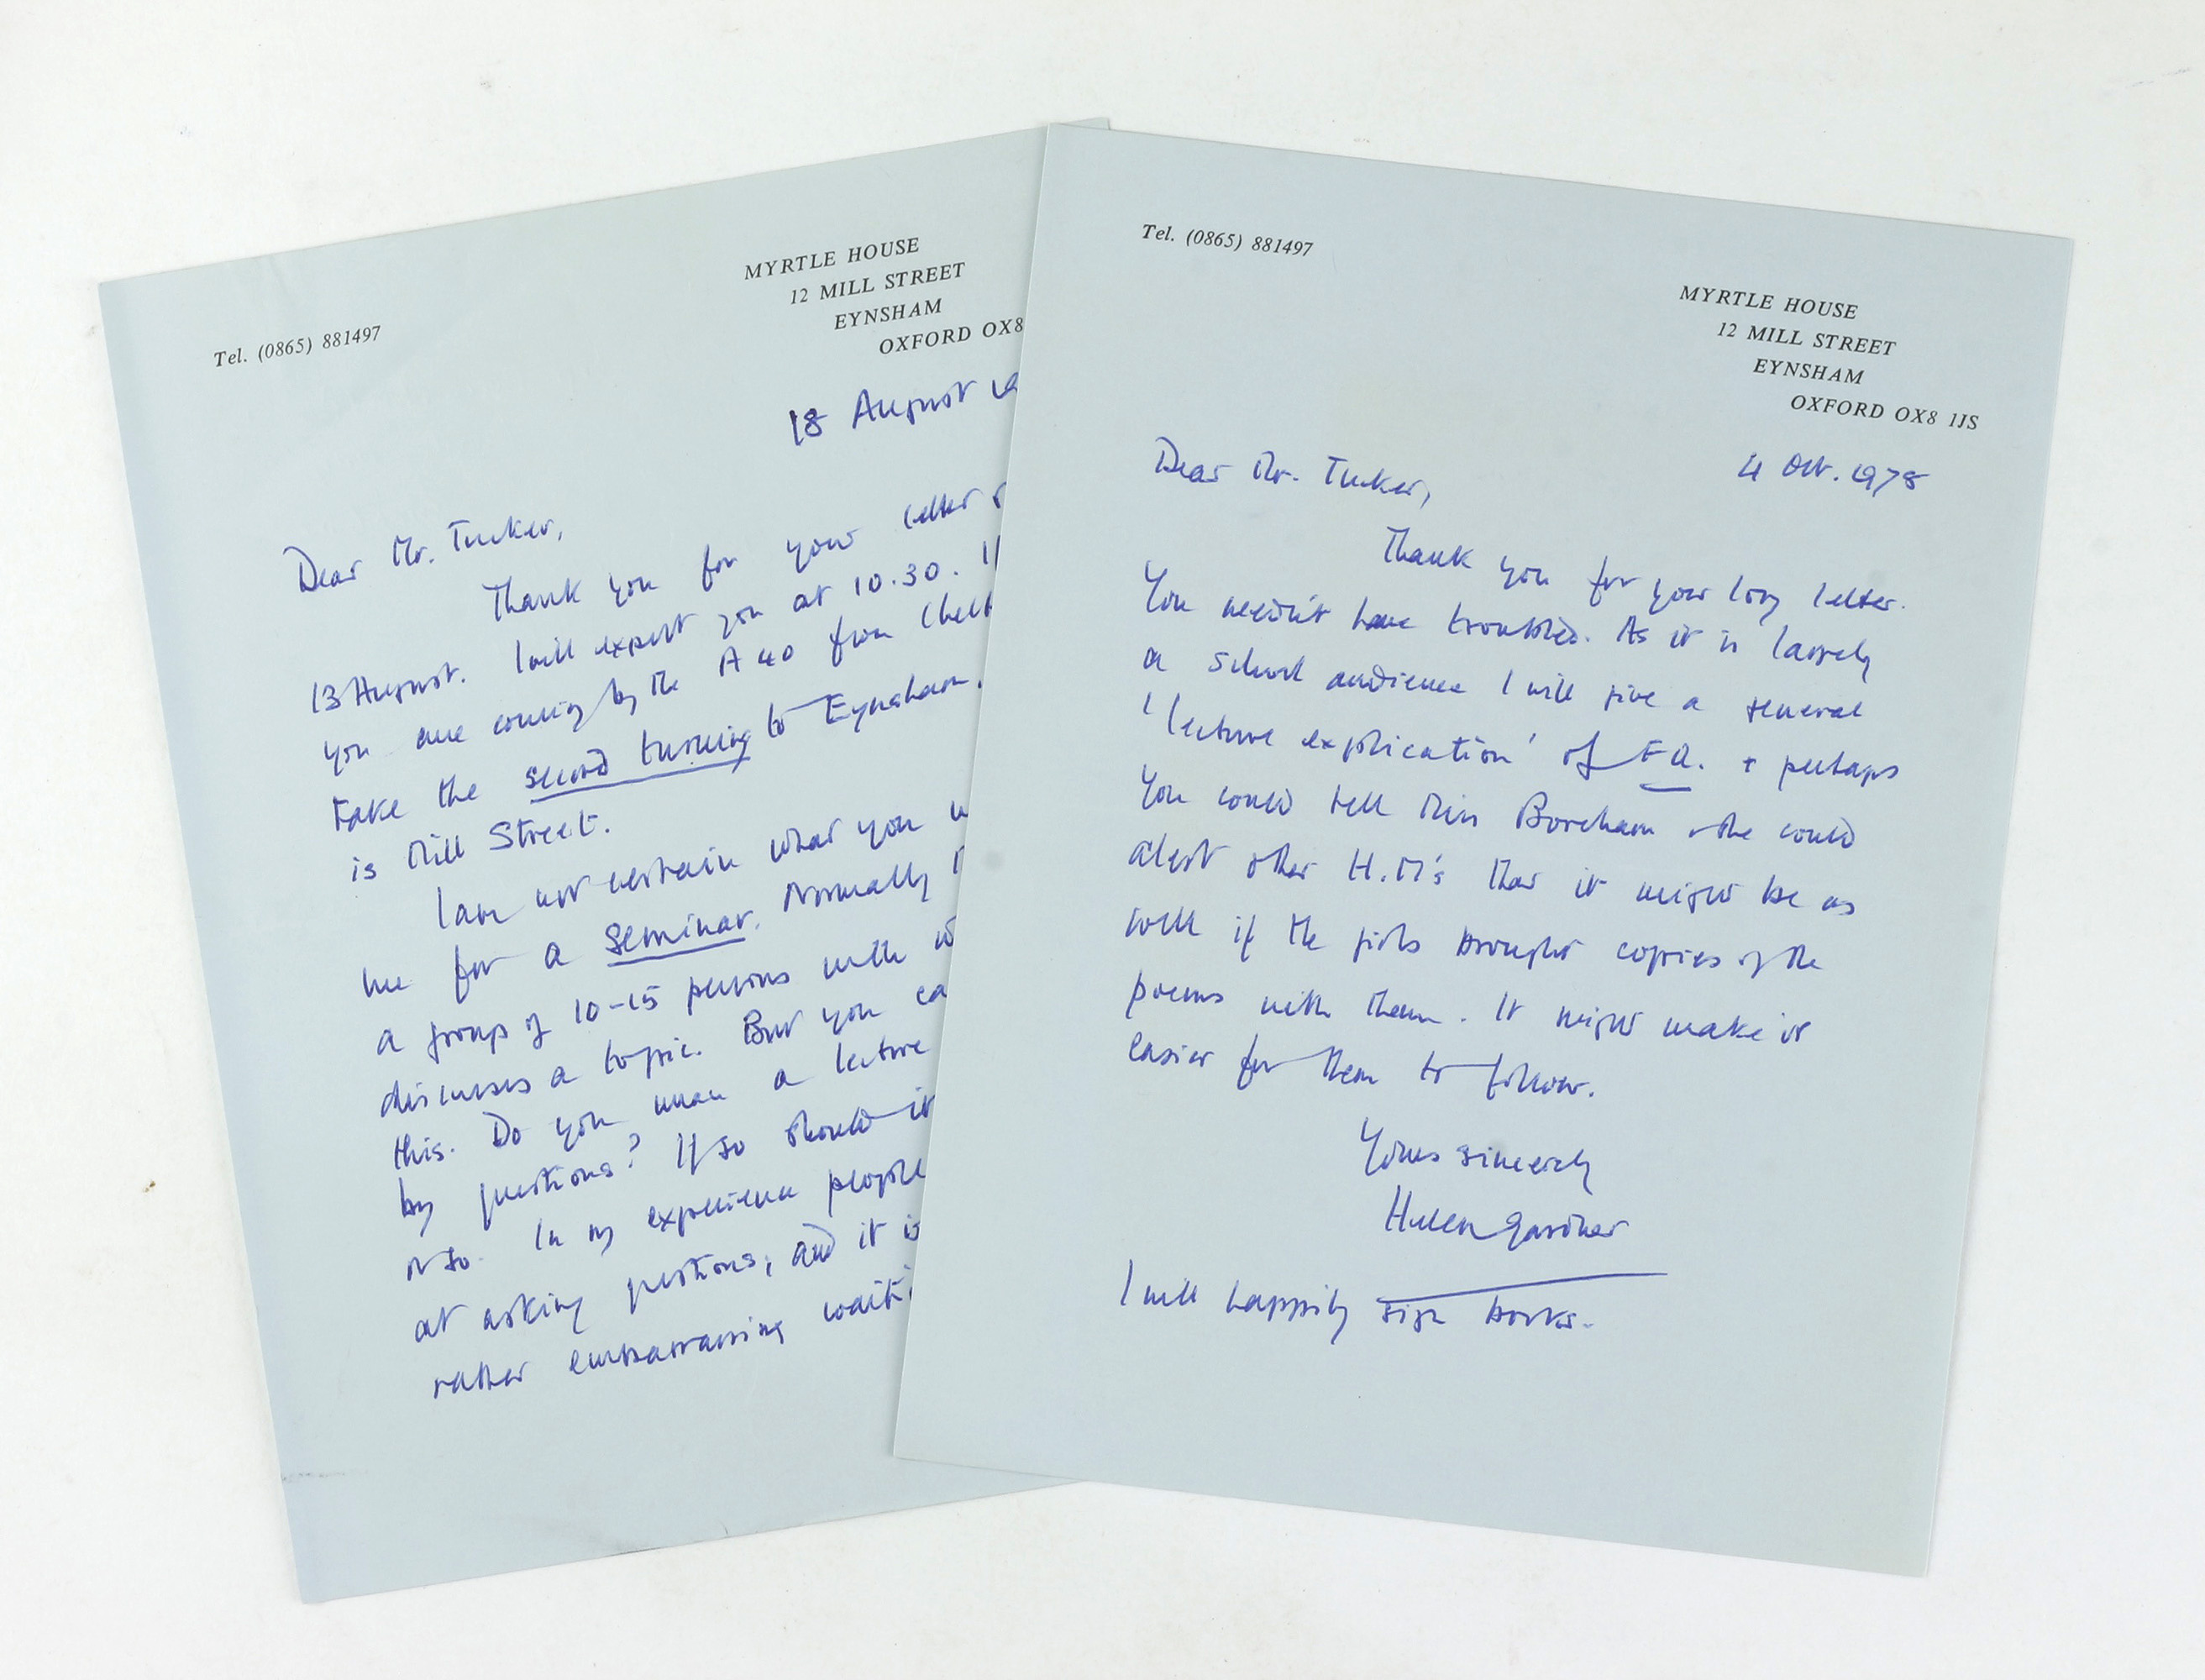 Tel. (0865) 881497
MYRTLE HOUSE
12 MILL STREET
EYNSHAM
OXFORD OX8
18 August 19
Dear Mr. Tucker,
Thank you for your letter
13 August. I will expect you at 10.30. If
you are coming by the A40 from Chelt
take the second turning to Eynsham.
is Mill Street.
I am not certain what you w
me for a seminar. Normally
a group of 10-15 persons with
discusses a topic. But you ca
this. Do you mean a lecture
by questions? If so should it
or so. In my experience people
at asking questions; and it is
rather embarrassing waiti
Tel. (0865) 881497
MYRTLE HOUSE
12 MILL STREET
EYNSHAM
OXFORD OX8 1JS
4 Oct. 1978
Dear Mr. Tucker,
Thank you for your long letter.
You needn't have troubled. As it is largely
a school audience I will give a general
'lecture explication' of FQ. + perhaps
you could tell Miss Boreham & she could
alert other H.M's that it might be as
well if the girls brought copies of the
poems with them. It might make it
easier for them to follow.
Yours sincerely
Helen Gardner
I will happily sign books.